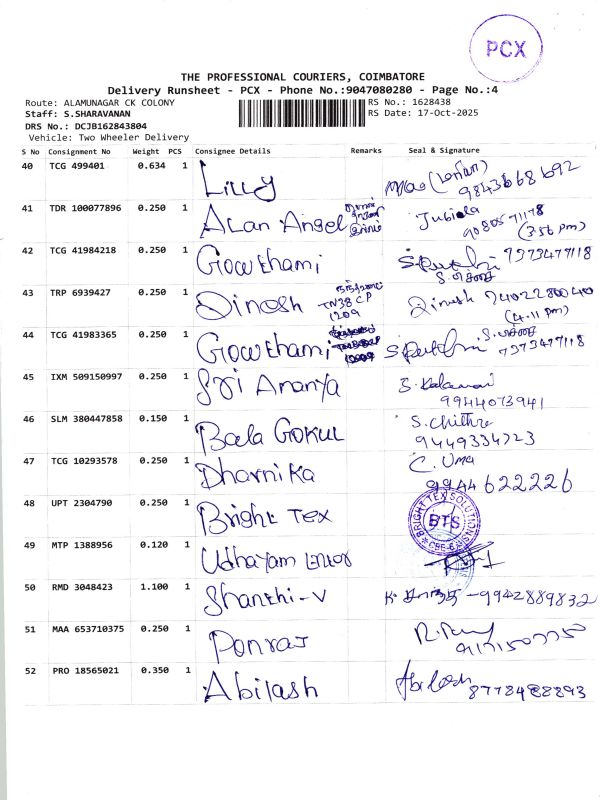 PCX
THE PROFESSIONAL COURIERS, COIMBATORE
Delivery Runsheet - PCX - Phone No.:9047080280 - Page No.:4
Route: ALAMUNAGAR CK COLONY
RS No.: 1628438
Staff: S.SHARAVANAN
RS Date: 17-Oct-2025
DRS No.: DCJB162843804
Vehicle: Two Wheeler Delivery
S No Consignment No Weight PCS Consignee Details Remarks Seal & Signature
40 TCG 499401 0.634 1 Lilly 9843668692
41 TDR 100077896 0.250 1 Alan Angel Jubiela (3:56 pm)
42 TCG 41984218 0.250 1 Gowthami 7373477118
43 TRP 6939427 0.250 1 Dinesh TN38 CP 1209 Dinesh 7402280040 (4.11 pm)
44 TCG 41983365 0.250 1 Gowthami 7373477118
45 IXM 509150997 0.250 1 Sri Ananya 9944073941
46 SLM 380447858 0.150 1 Bala Gokul S. Chithra 9449334723
47 TCG 10293578 0.250 1 Dharnika C. Uma 9944622226
48 UPT 2304790 0.250 1 Bright Tex BRIGHT TEX SOLUTIONS BTS
49 MTP 1388956 0.120 1 Udhayam
50 RMD 3048423 1.100 1 Shanthi-V 9942889832
51 MAA 653710375 0.250 1 Ponraj
52 PRO 18565021 0.350 1 Abilash Abilash